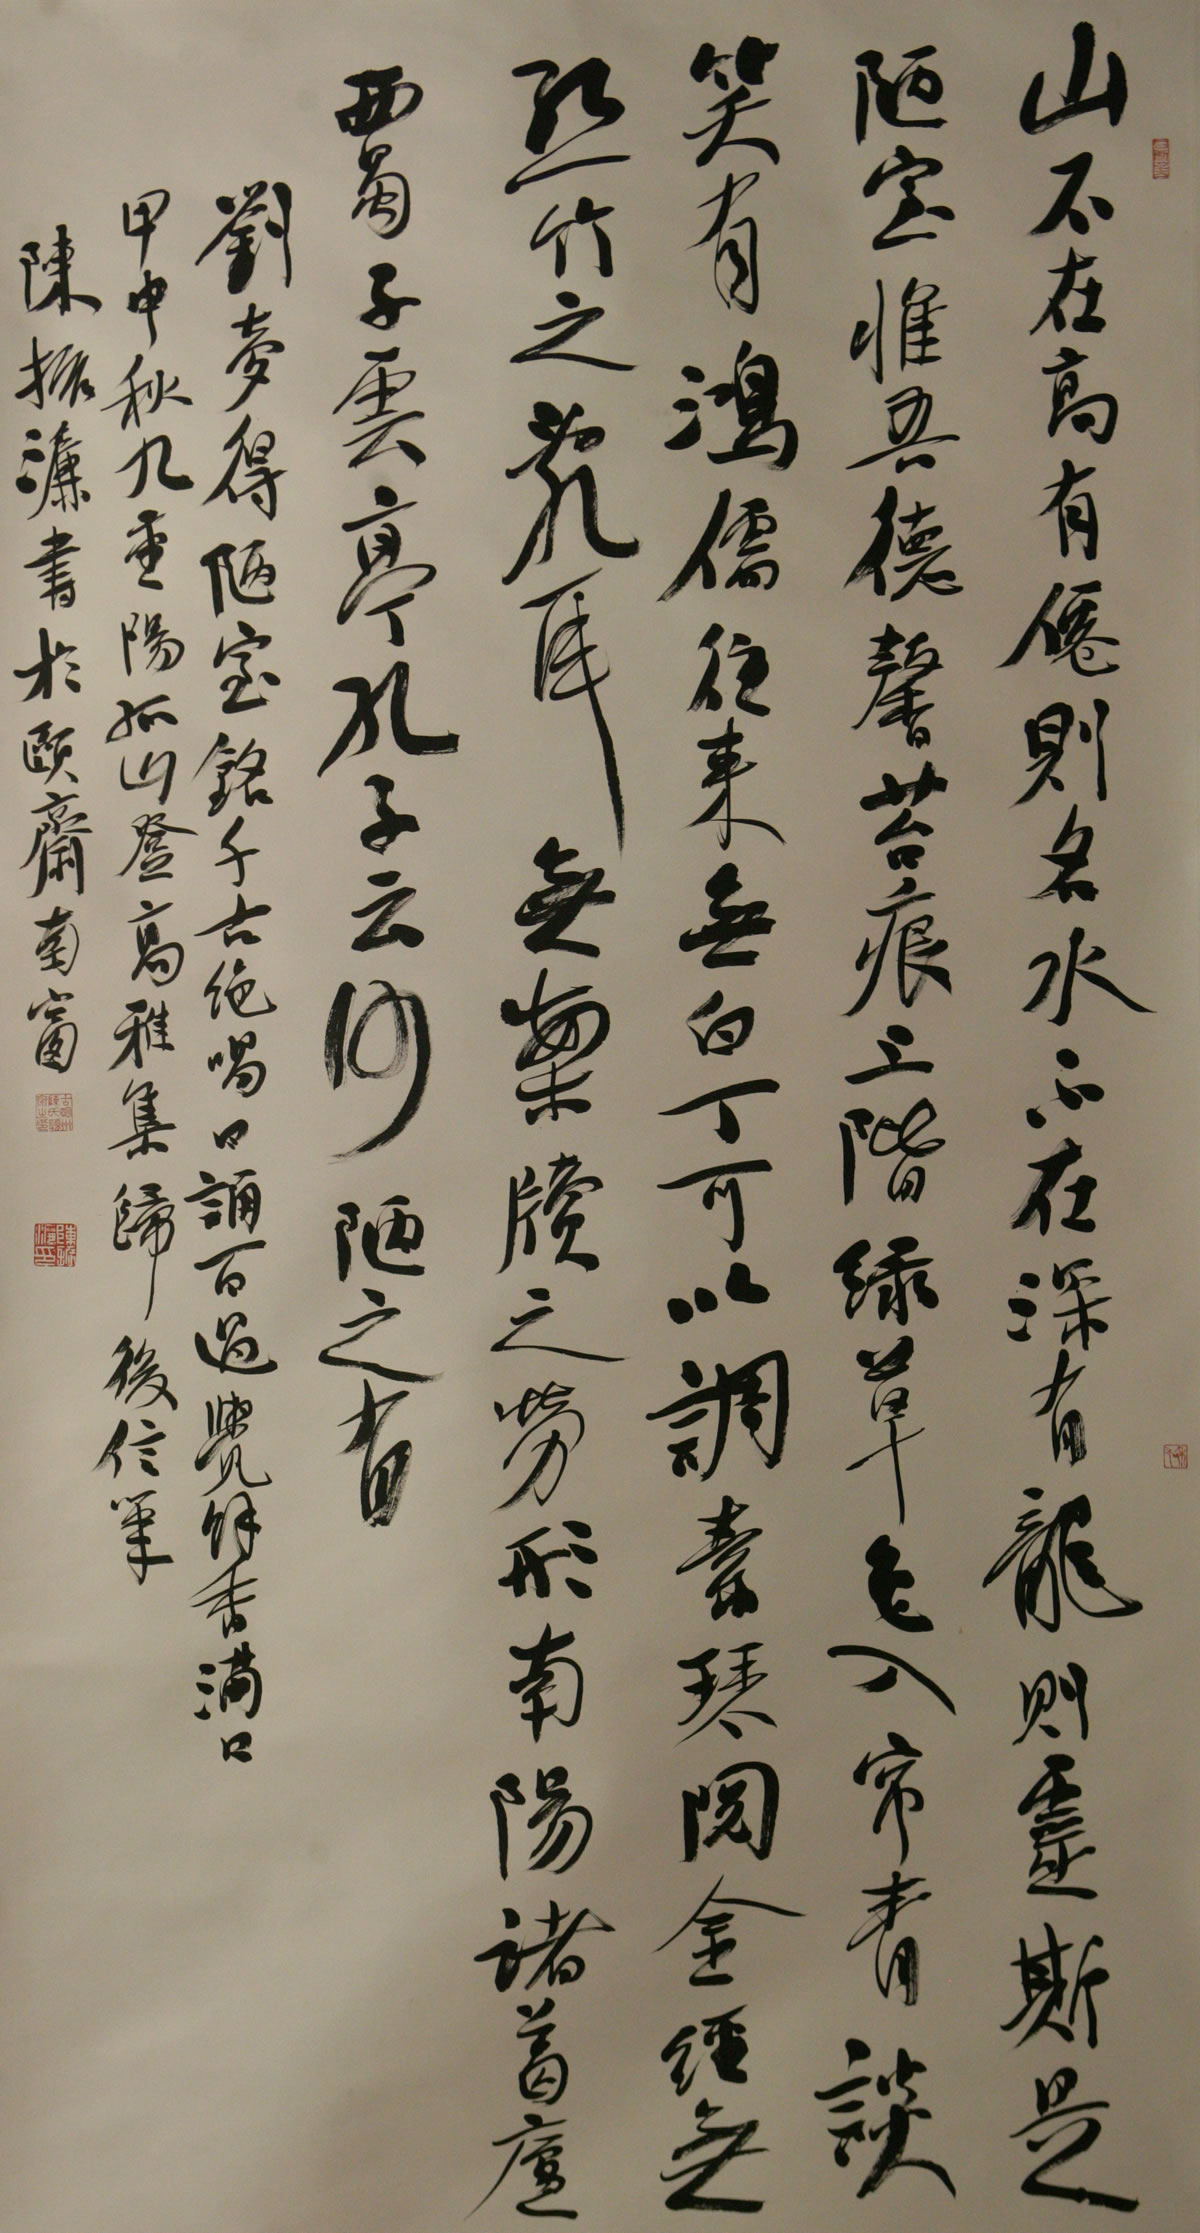 山不在高有僊則名水不在深有龍則靈斯是
陋室惟吾德馨苔痕上階緑草色入帘青談
笑有鴻儒往来無白丁可以調素琴閲金經無
絲竹之亂耳無案牘之勞形南陽諸葛廬
西蜀子雲亭孔子云何陋之有
劉夢得陋室銘千古絶唱口誦百過覺餘香滿口
甲申秋九重陽孤山登高雅集歸後信筆
陳振濂書於頤齋南窗